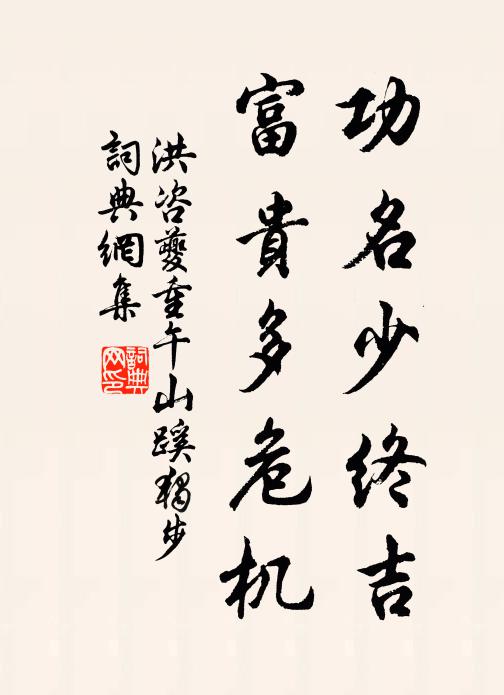 功名少终吉
富貴多危机
洪咨夔重午山蹊獨步
詞典網集
詞典网印